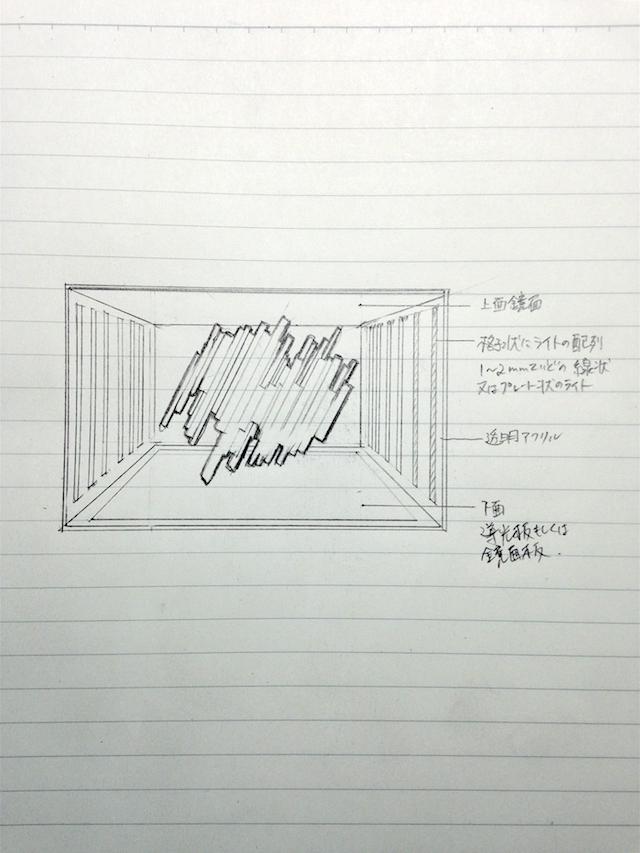 上面鏡面
格子状にライトの配列
1~2mmていどの線状
又はプレート状のライト
透明アクリル
下面
導光板もしくは
鏡面板.